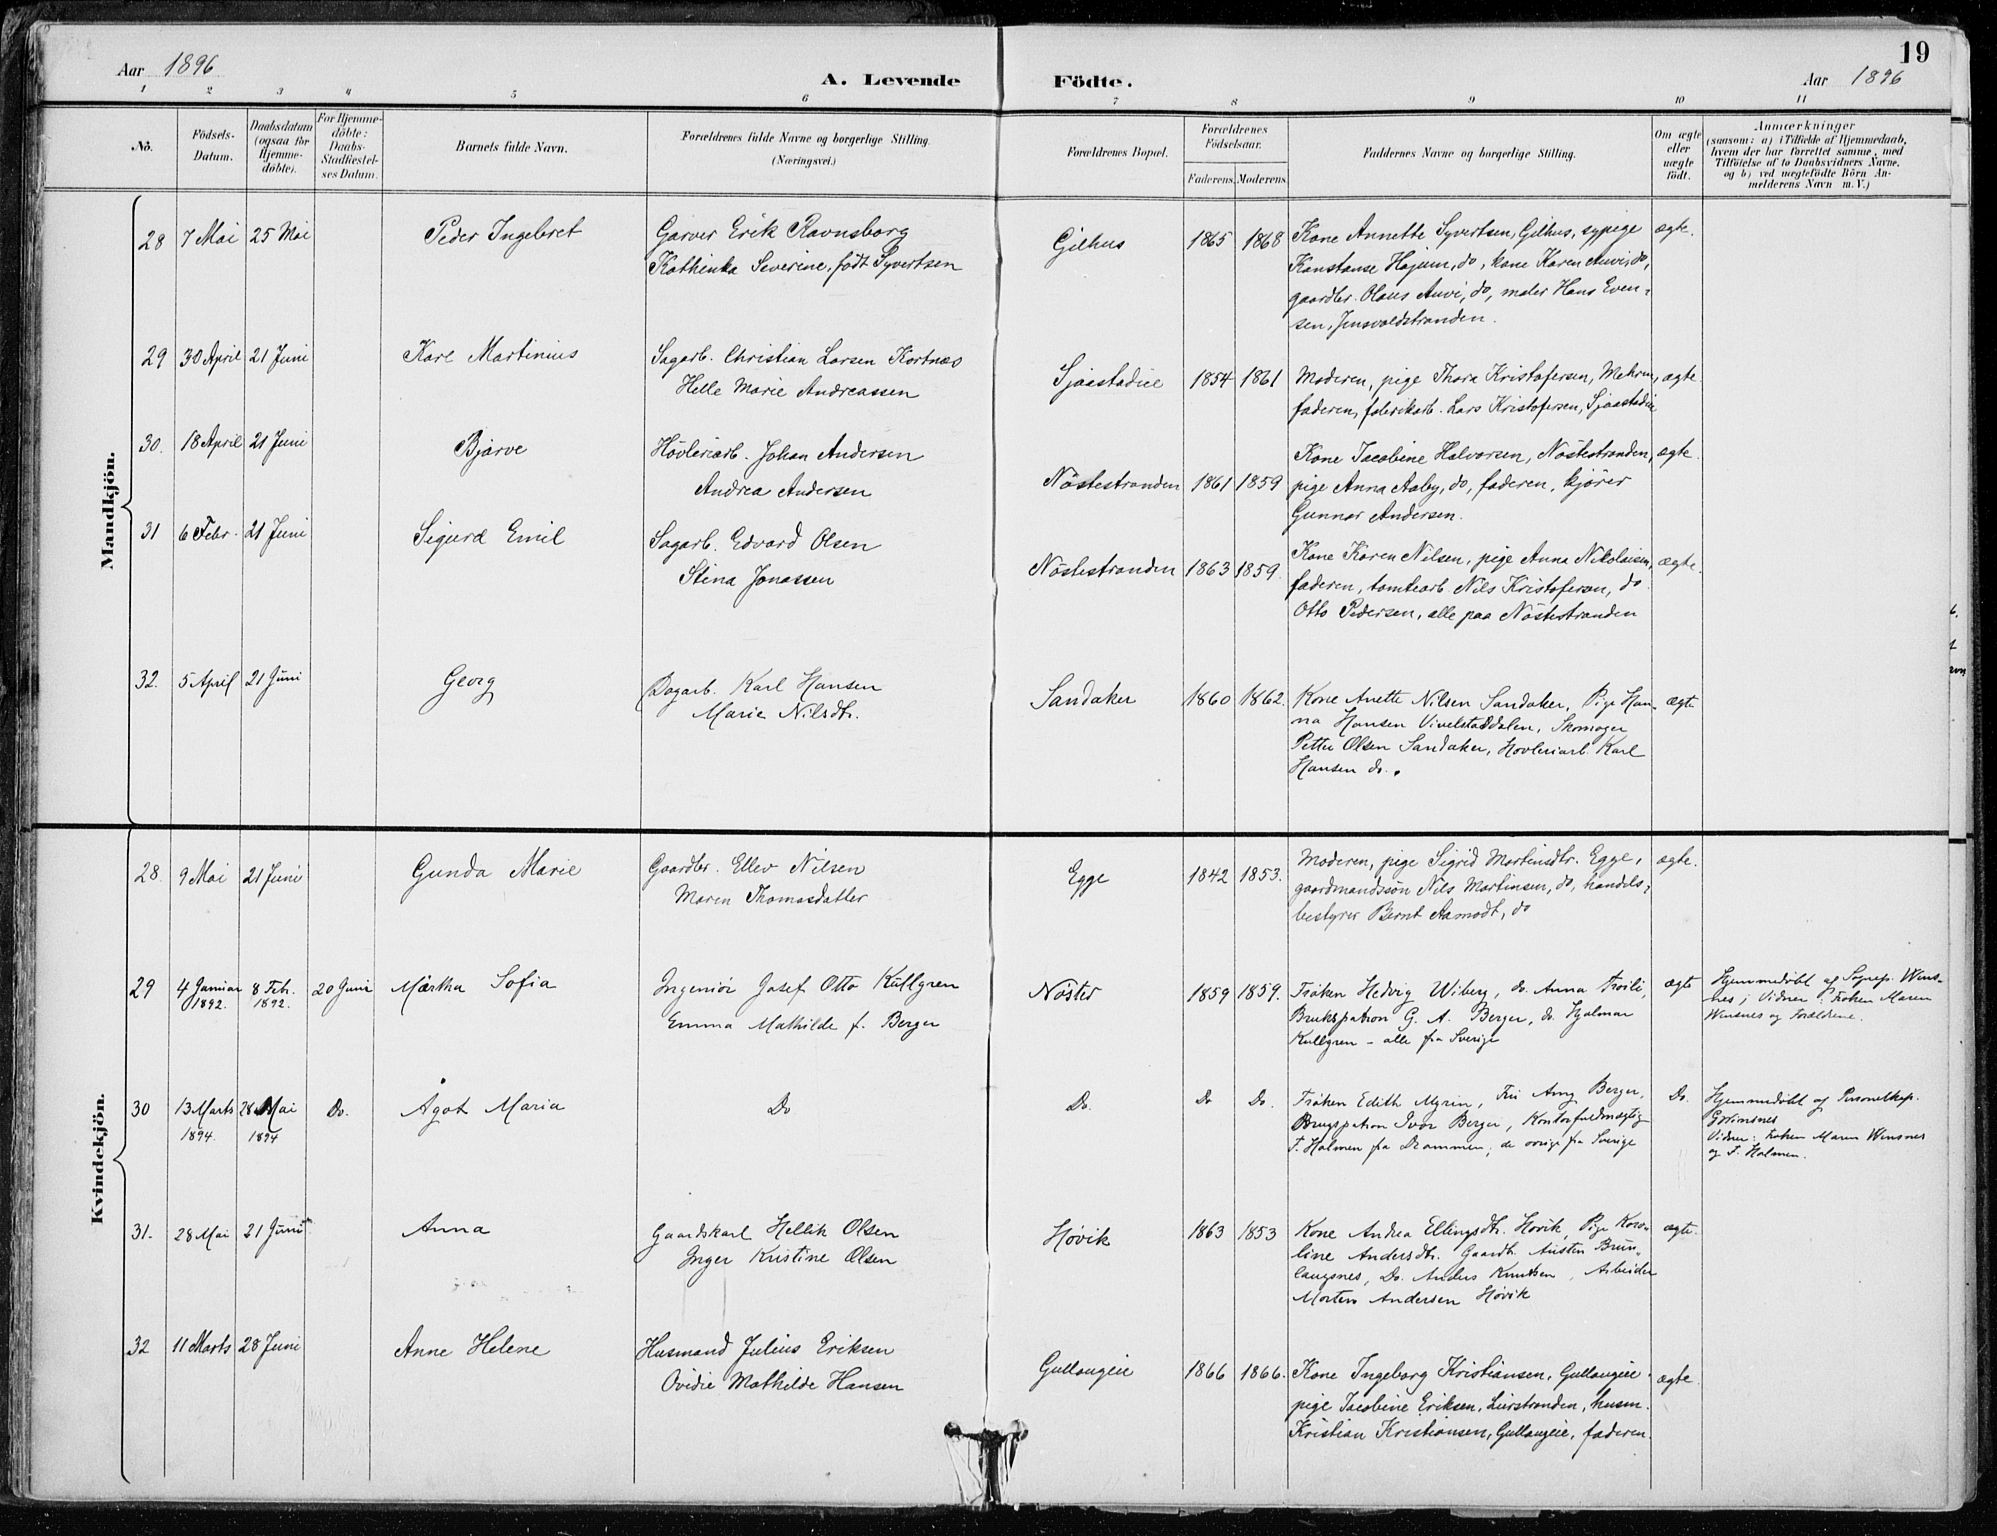 19
Aar 1896
A. Levende Födte.
Aar 1896
1 2 3 4 5 6 7 8 9 10 11
No.
Födsels-Datum.
Daabsdatum (ogsaa for Hjemmedøbte).
For Hjemmedöbte: Daabs-Stadfæstelses Datum.
Barnets fulde Navn.
Forældrenes fulde Navne og borgerlige Stilling.
(Næringsvei.)
Forældrenes Bopæl.
Forældrenes Födselsaar.
Faderens. Moderens.
Faddernes Navne og borgerlige Stilling.
Om ægte eller uægte födt.
Anmærkninger
(saasom: a) i Tilfælde af Hjemmedaab,
hvem der har forrettet samme, med
Tilföielse af to Daabsvidners Navne,
og b) ved uægtefödte Börn An-
melderens Navn m.V.)
Mandkjön.
28 7 Mai 25 Mai Peder Ingebret
Garver Erik Ravnsborg
Kathinka Severine, født Syvertsen
Gilhus 1865 1868
Kone Annette Syvertsen, Gilhus, sypige
Konstanse Hajum, do, kone Karen Auvi, do,
gaardbr. Olaus Auvi, do, maler Hans Even-
sen, Jensvoldstranden.
ægte.
29 30 April 21 Juni Karl Martinius
Sagarb. Christian Larsen Kortnæs
Helle Marie Andreassen
Sjaastadie 1854 1861
Moderen, pige Thora Kristofersen, Mehren,
faderen, fabrikarb. Lars Kristofersen, Sjaastadie
ægte.
30. 18 April 21 Juni Bjarve
Høvleriarb. Johan Andersen
Andrea Andersen
Nöstestranden 1861 1859
Kone Jacobine Halvorsen, Nöstestranden,
pige Anna Aaby, do, faderen, kjører
Gunnar Andersen.
ægte.
31 6 Febr. 21 Juni Sigurd Emil
Sagarb. Edvard Olsen
Stina Jonassen
Nöstestranden 1863 1859.
Kone Karen Nilsen, pige Anna Nikolaisen,
faderen, tomtearb. Nils Kristofersen, do
Otto Pedersen, alle paa Nöstestranden
ægte.
32. 5 April 21 Juni Georg
Dagarb. Karl Hansen
Marie Nilsdtr.
Sandaker 1860 1862.
Kone Anette Nilsen Sandaker, Pige Han-
na Hansen Vivelstaddalen, Skomager
Petter Olsen Sandaker, Høvleriarb. Karl
Hansen do.
ægte
Kvindekjön.
28. 9 Mai 21 Juni Gunda Marie
Gaardbr. Ellev Nilsen
Maren Thomasdatter
Egge 1842 1853.
Moderen, pige Sigrid Martinsdtr. Egge,
gaardmandssøn Nils Martinsen, do, handels-
bestyrer Bernt Aamodt, do
ægte.
29 4 Januar 1892. 8 Feb. 1892. 20 Juni Märtha Sofia
Ingeniør Josef Otto Kullgren
Emma Mathilde f. Berger
Nøsted 1859 1859.
Frøken Hedvig Wiberg, do. Anna Troili,
Brukspatron G. A. Berger, do. Hjalmar
Kullgren – alle fra Sverige
ægte
Hjemmedøbt af Sognep. Wens-
nes; Vidner: Frøken Maren
Wensnes og Forældrene.
30 13 Marts 1894. 28 Mai 1894 Do. Ågot Maria
Do
Do. Do Do.
Frøken Edith Myrin, Fru Amy Berger,
Brugspatron Ivar Berger, Kontorfuldmægtig
F. Holmen fra Drammen, de øvrige fra Sverige
Do.
Hjemmedøbt af Personelkap.
Grimsnes
Vidner: Frøken Maren Wensnes
og F. Holmen.
31. 28 Mai 21 Juni Anna
Gaardskarl Hellik Olsen
Inger Kristine Olsen
Høvik 1863 1853
Kone Andrea Ellingsdtr. Høvik, Pige Karo-
line Andersdtr. Gaardbr. Austen Brun-
langsnes, Do. Anders Knutsen, Arbeider
Morten Andersen Høvik
ægte.
32 11 Marts 28 Juni Anne Helene
Husmand Julius Eriksen
Ovidie Mathilde Hansen
Gullaugeie 1866 1866.
Kone Ingeborg Kristiansen, Gullaugeie,
pige Jacobine Eriksen, Lierstranden, husm.
Kristian Kristiansen, Gullaugeie, faderen.
ægte.